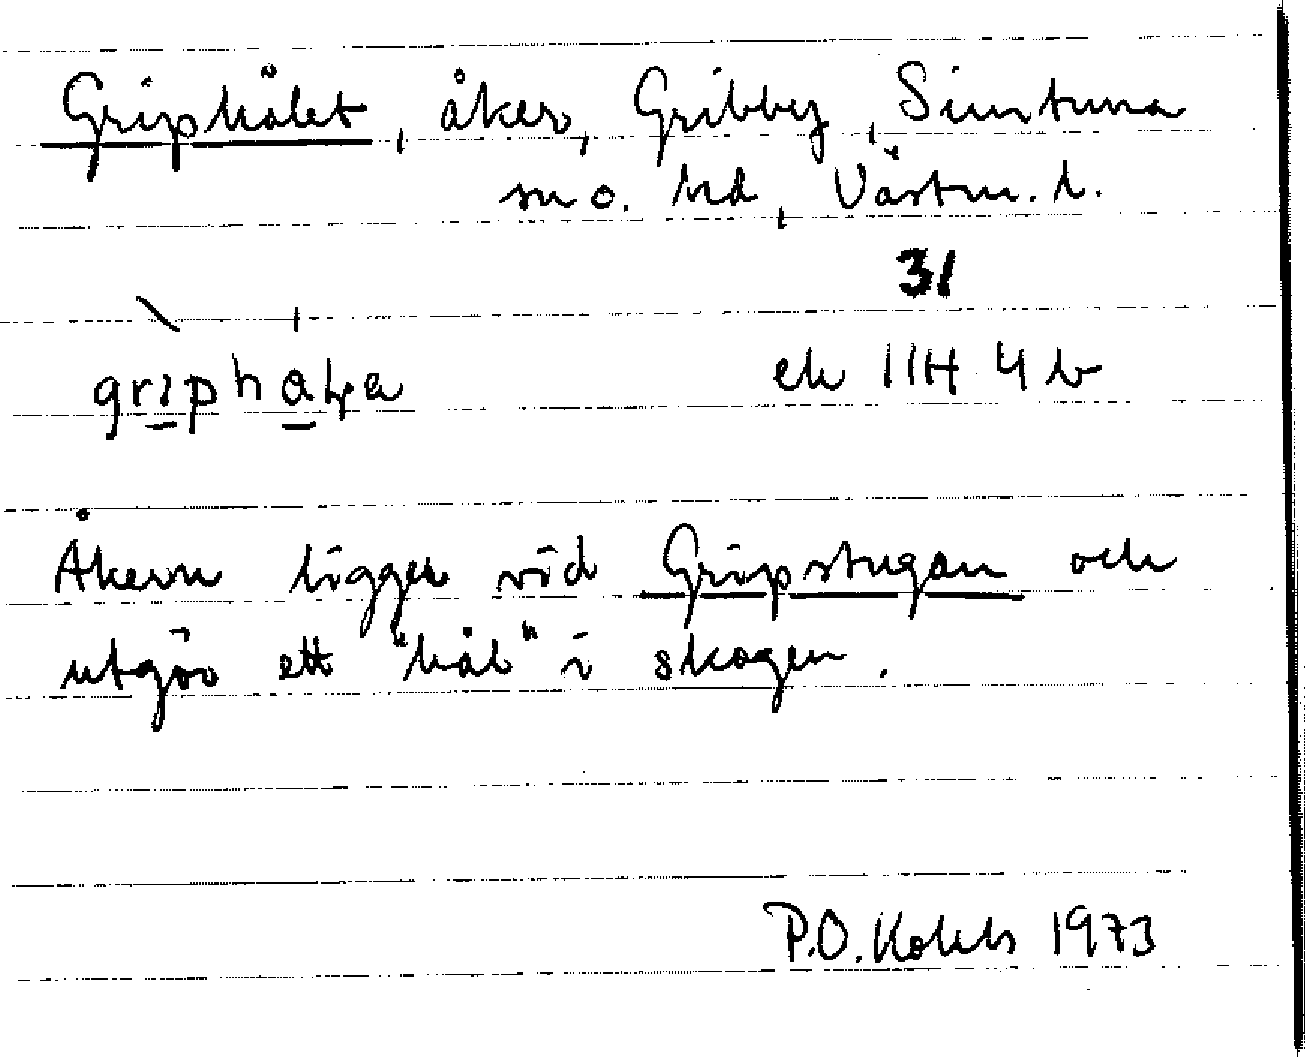 Griphålet, åker, Gribby, Simtuna
sn o. hd, Västm. l.
31
ek 11H 4 b
Åkern ligger vid Gripstugan och
utgör ett "hål" i skogen.
P.O. 1973